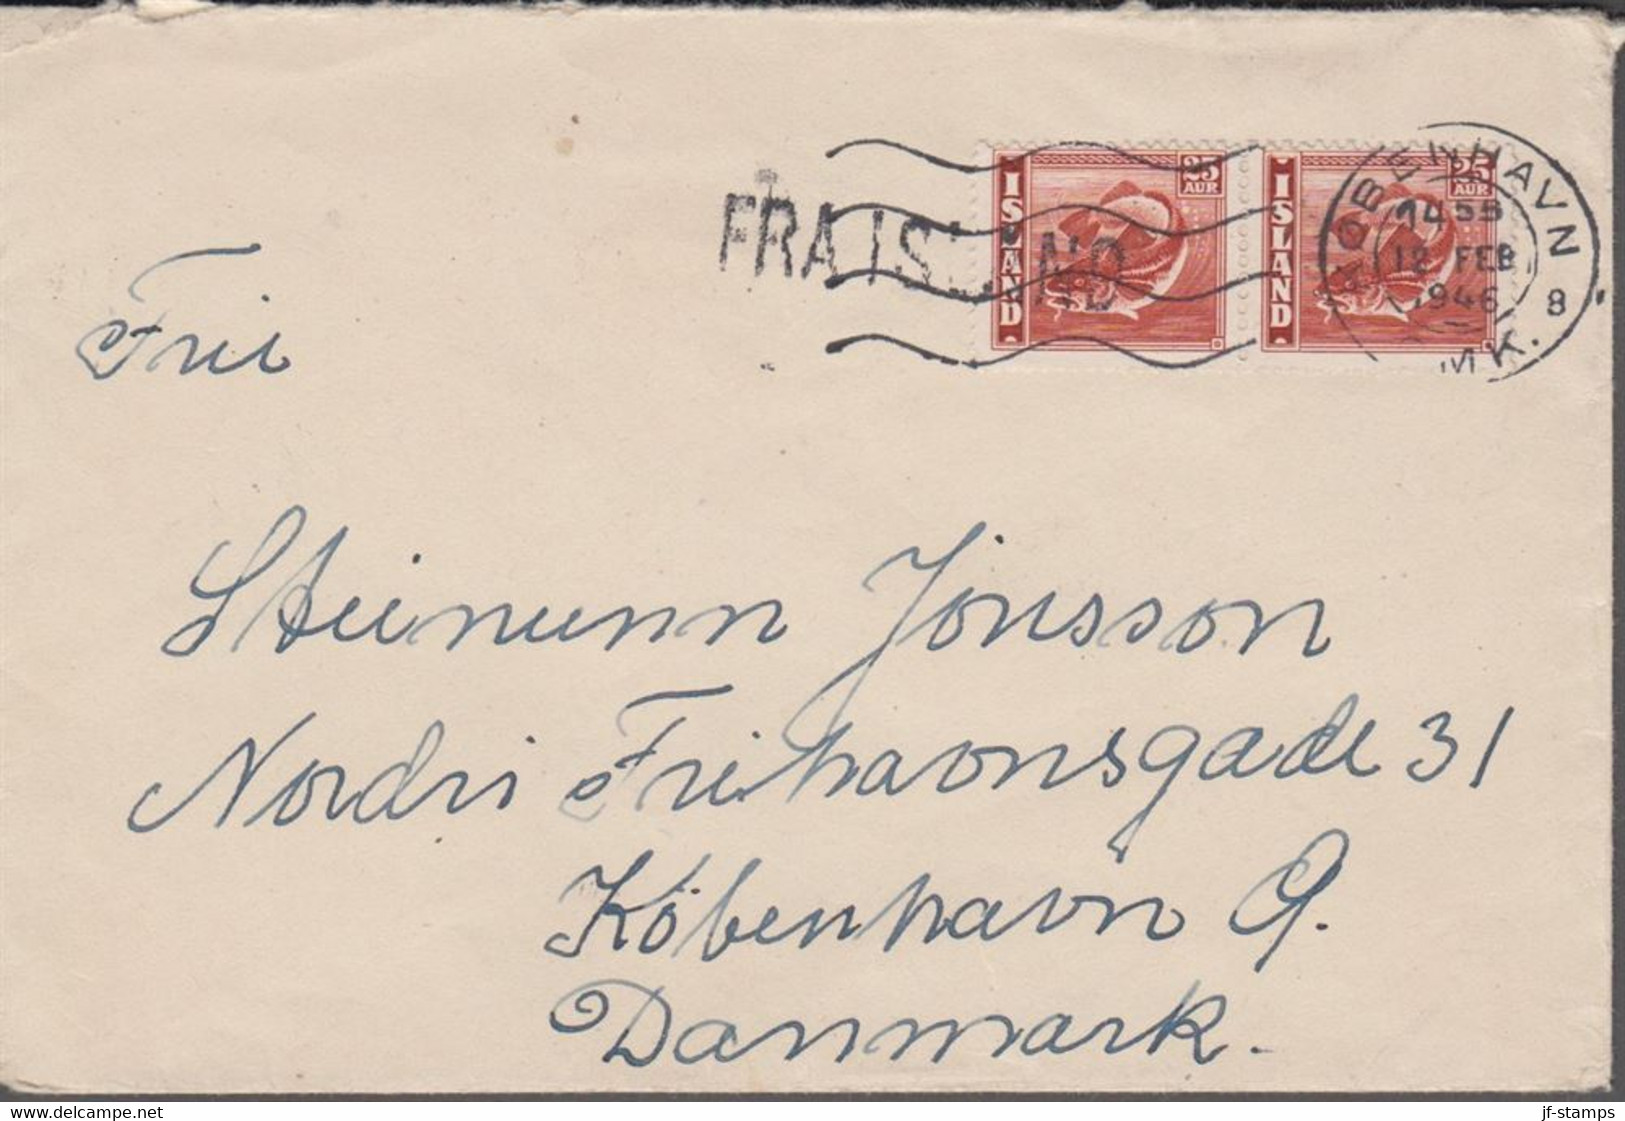 FRA ISLAND
ISLAND 25 AUR
ISLAND 25 AUR
KØBENHAVN
1455
12 FEB
1946
8
OMK.
Frii
Steinunn Jónsson
Nordri Frihavnsgade 31
Köbenhavn Ø.
Danmark.
www.delcampe.net
jf-stamps